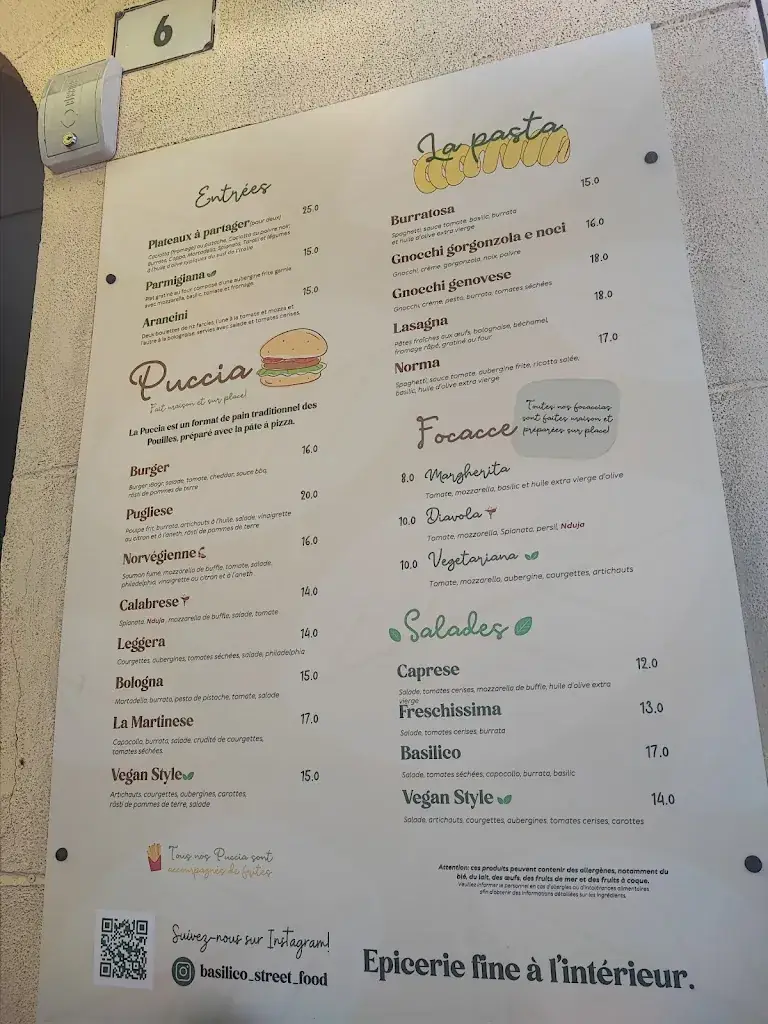 6
Entrées
Plateaux à partager (pour deux) 25.0
Caciotta (fromage) au pistache, Caciotta au poivre noir,
Burrata, Coppa, Mortadella, Spianata, Taralli et légumes
à l'huile d'olive typiques du sud de l'Italie
Parmigiana 15.0
Plat gratiné au four composé d'une aubergine frite garnie
avec mozzarella, basilic, tomate et fromage
Arancini 15.0
Deux boulettes de riz farcies, l'une à la tomate et mozza et
l'autre à la bolognaise, servies avec salade et tomates cerises.
Puccia
Fait maison et sur place!
La Puccia est un format de pain traditionnel des
Pouilles, préparé avec la pâte à pizza.
Burger 16.0
Burger 180gr, salade, tomate, cheddar, sauce bbq,
rösti de pommes de terre
Pugliese 20.0
Poulpe frit, burrata, artichauts à l'huile, salade, vinaigrette
au citron et à l'aneth, rösti de pommes de terre
Norvégienne 16.0
Saumon fumé, mozzarella de buffle, tomate, salade,
philadelphia, vinaigrette au citron et à l'aneth
Calabrese 14.0
Spianata, Nduja, mozzarella de buffle, salade, tomate
Leggera 14.0
Courgettes, aubergines, tomates séchées, salade, philadelphia
Bologna 15.0
Mortadella, burrata, pesto de pistache, tomate, salade
La Martinese 17.0
Capocollo, burrata, salade, crudité de courgettes,
tomates séchées,
Vegan Style 15.0
Artichauts, courgettes, aubergines, carottes,
rösti de pommes de terre, salade
Tous nos Puccia sont
accompagnés de frites
Suivez-nous sur Instagram!
basilico_street_food
La pasta
Burratosa 15.0
Spaghetti, sauce tomate, basilic, burrata
et huile d'olive extra vierge
Gnocchi gorgonzola e noci 16.0
Gnocchi, crème, gorgonzola, noix, poivre
Gnocchi genovese 18.0
Gnocchi, crème, pesto, burrata, tomates séchées
Lasagna 18.0
Pâtes fraîches aux œufs, bolognaise, béchamel,
fromage râpé, gratiné au four.
Norma 17.0
Spaghetti, sauce tomate, aubergine frite, ricotta salée,
basilic, huile d'olive extra vierge
Focacce
Toutes nos focaccias
sont faites maison et
préparées sur place!
8.0 Margherita
Tomate, mozzarella, basilic et huile extra vierge d'olive
10.0 Diavola
Tomate, mozzarella, Spianata, persil, Nduja
10.0 Vegetariana
Tomate, mozzarella, aubergine, courgettes, artichauts
Salades
Caprese 12.0
Salade, tomates cerises, mozzarella de buffle, huile d'olive extra
vierge
Freschissima 13.0
Salade, tomates cerises, burrata
Basilico 17.0
Salade, tomates séchées, capocollo, burrata, basilic
Vegan Style 14.0
Salade, artichauts, courgettes, aubergines, tomates cerises, carottes
Attention: ces produits peuvent contenir des allergènes, notamment du
blé, du lait, des œufs, des fruits de mer et des fruits à coque.
Veuillez informer le personnel en cas d'allergies ou d'intolérances alimentaires
afin d'obtenir des informations détaillées sur les ingrédients.
Epicerie fine à l'intérieur.